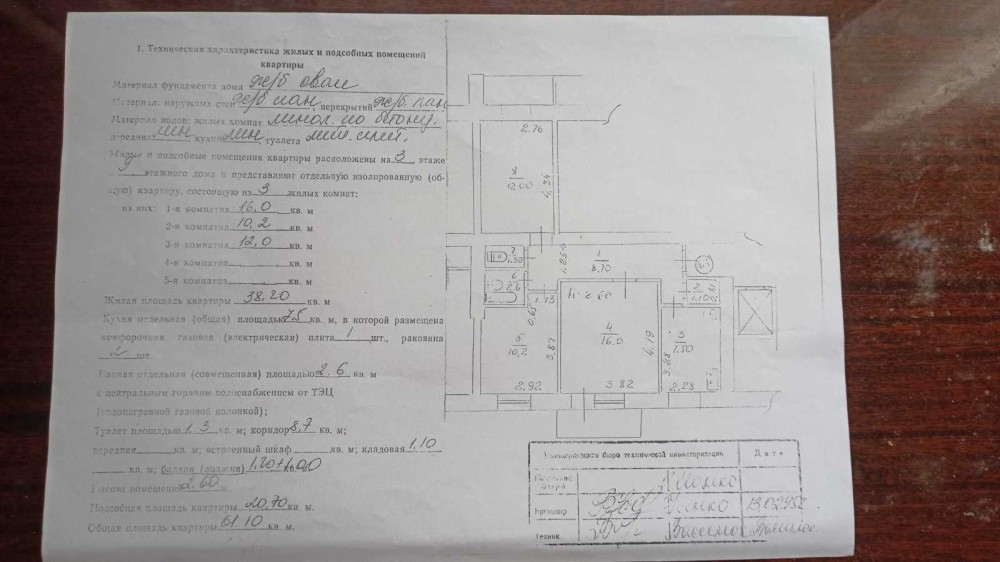 1. Техническая характеристика жилых и подсобных помещений
квартиры
Материал фундамента дома ж/б сваи
Материал: наружных стен ж/б пан., перекрытий ж/б. пан
Материал полов: жилых комнат линол. по бетону.
передних лин, кухни лин, туалета
Жилые и подсобные помещения квартиры расположены на 3 этаже
9 этажного дома и представляют отдельную изолированную (об-
щую) квартиру, состоящую из 3 жилых комнат;
из них: 1-я комната 16,0 кв. м
2-я комната 10,2 кв. м
3-я комната 12,0 кв. м
4-я комната кв. м
5-я комната кв. м
Жилая площадь квартиры 38,20 кв. м
Кухня отдельная (общая) площадью 7,5 кв. м, в которой размещена
комфорочная газовая (электрическая) плита 1 шт., раковина
2 шт.
Ванная отдельная (совмещенная) площадью 2.6 кв. м
с центральным горячим водоснабжением от ТЭЦ
(водонагревной газовой колонкой);
Туалет площадью 1,3 кв. м; коридор 8,7 кв. м;
передняя кв. м; встроенный шкаф кв. м; кладовая 1.10
кв. м; балкон (лоджия) 1.20+1.00
Высота помещения 2.60 м
Подсобная площадь квартиры 20,70 кв. м.
Общая площадь квартиры 61.10 кв. м.
2.76
8
12.00
4,34
7
1.30
6
2,6
1,85
1
8,70
2
1.10
1.13
0,65
5
10,2
3,87
2,92
4
16.0
4,19
3,82
3
7.50
3,28
2,28
бюро технической инвентаризации
Дата
Начальник
бюро
Бригадир
Техник